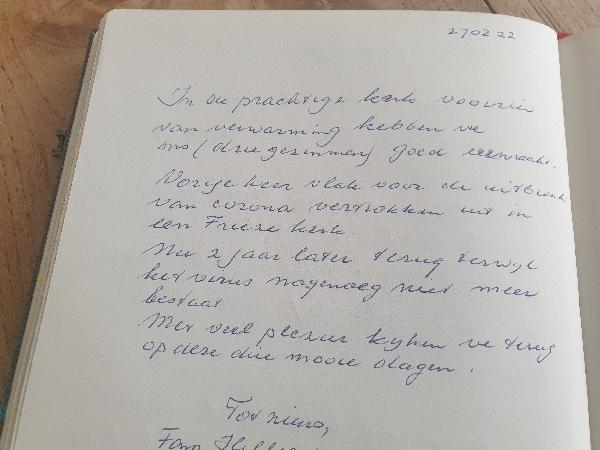 270222
In de prachtige kerk voorzien
van verwarming hebben we
ons (drie gezinnen) goed vermaakt.
Vorige keer vlak voor de uitbraak
van corona vertrokken uit in
een Friese kerk.
Nu 2 jaar later terug terwijl
het virus nagenoeg niet meer
bestaat
Met veel plezier kijken we terug
op deze drie mooie dagen.
Tot ziens,
Fam